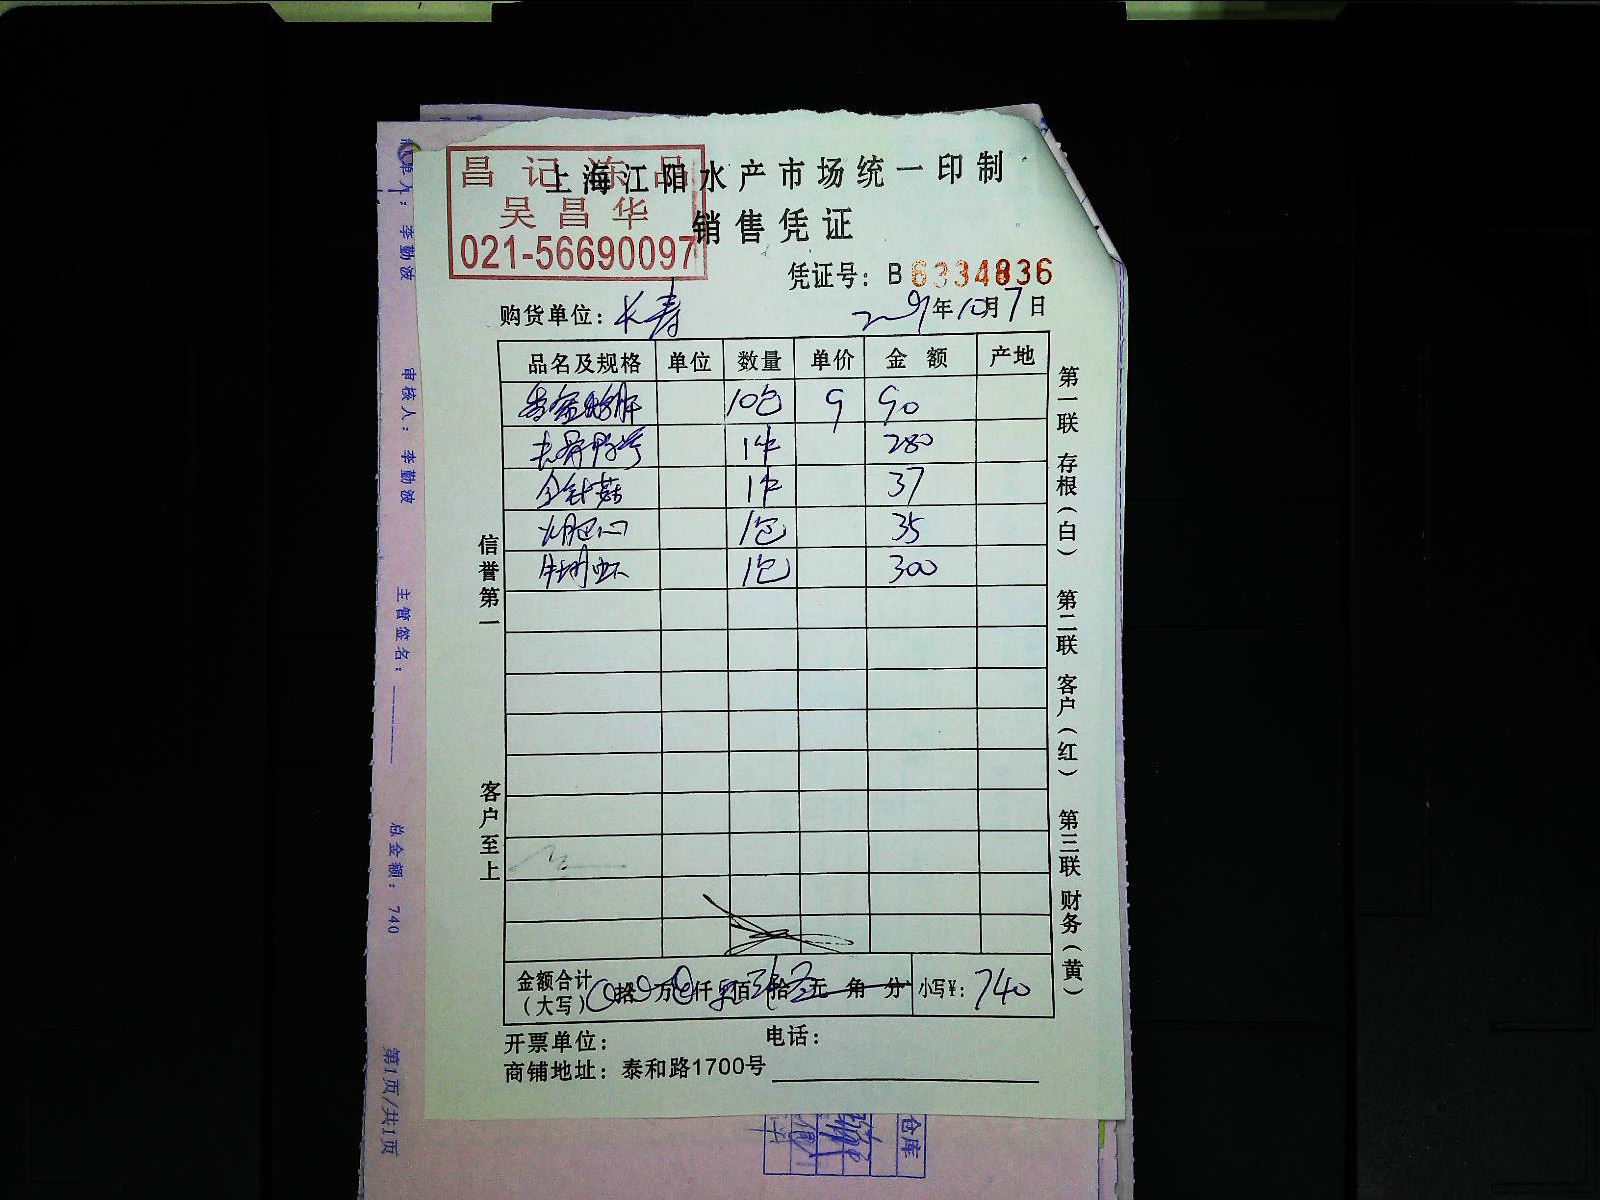 昌记冻品
吴昌华
021-56690097
上海江阳水产市场统一印制
销售凭证
凭证号：B 6334836
购货单位：长寿
年10月7日
品名及规格 单位 数量 单价 金额 产地
10包 9 90
去骨鸭掌 1件 280
金针菇 1件 37
1包 35
1包 300
金额合计（大写） 拾 万 仟 柒佰 肆拾 元 角 分 小写¥：740
开票单位： 电话：
商铺地址：泰和路1700号
信誉第一 客户至上
第一联 存根（白） 第二联 客户（红） 第三联 财务（黄）
李勤波
审核人：李勤波
主管签名：
总金额：740
第1页/共1页
仓库